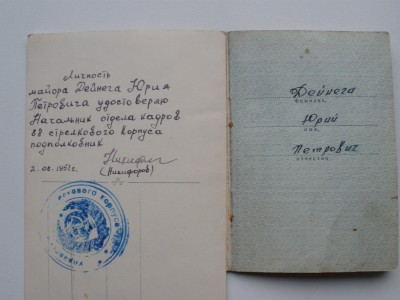 Личность
майора Дейнега Юрия
Петровича удостоверяю
Начальник отдела кадров
88 стрелкового корпуса
подполковник
(Никифоров)
2.08.1951г.
Дейнега
фамилия
Юрий
имя
Петрович
отчество